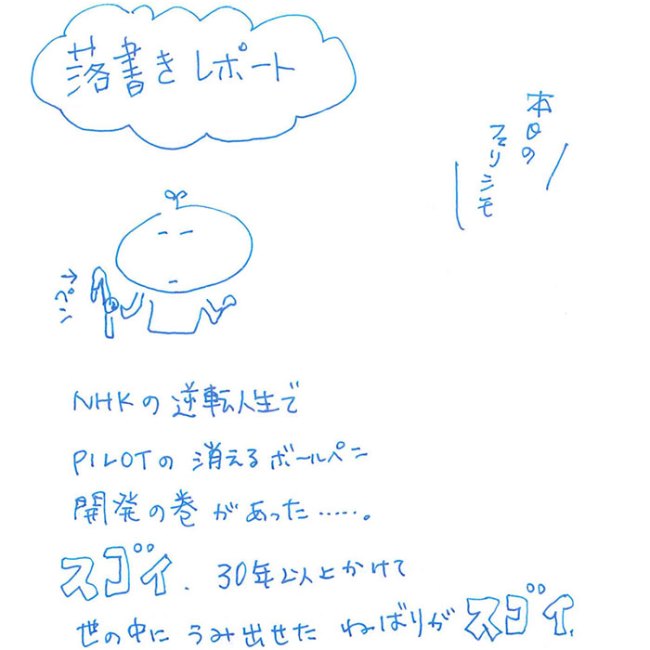 落書きレポート
本日の
フェリシモ
→ペン
NHKの逆転人生で
PILOTの消えるボールペン
開発の巻があった……。
スゴイ.30年以上かけて
世の中にうみ出せたねばりがスゴイ.